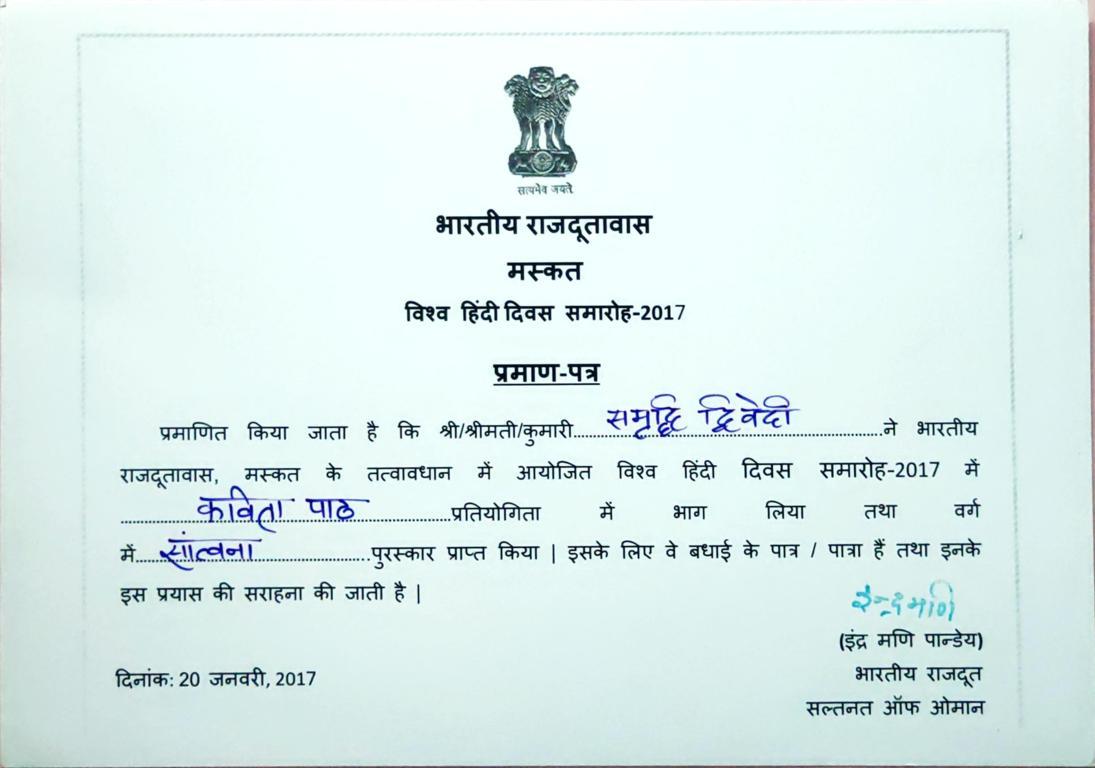 सत्यमेव जयते
भारतीय राजदूतावास
मस्कत
विश्व हिंदी दिवस समारोह-2017
प्रमाण-पत्र
प्रमाणित किया जाता है कि श्री/श्रीमती/कुमारी समृद्धि द्विवेदी ने भारतीय
राजदूतावास, मस्कत के तत्वावधान में आयोजित विश्व हिंदी दिवस समारोह-2017 में
कविता पाठ प्रतियोगिता में भाग लिया तथा वर्ग
में सांत्वना पुरस्कार प्राप्त किया | इसके लिए वे बधाई के पात्र / पात्रा हैं तथा इनके
इस प्रयास की सराहना की जाती है |
इन्द्रमणि
(इंद्र मणि पान्डेय)
भारतीय राजदूत
सल्तनत ऑफ ओमान
दिनांक: 20 जनवरी, 2017